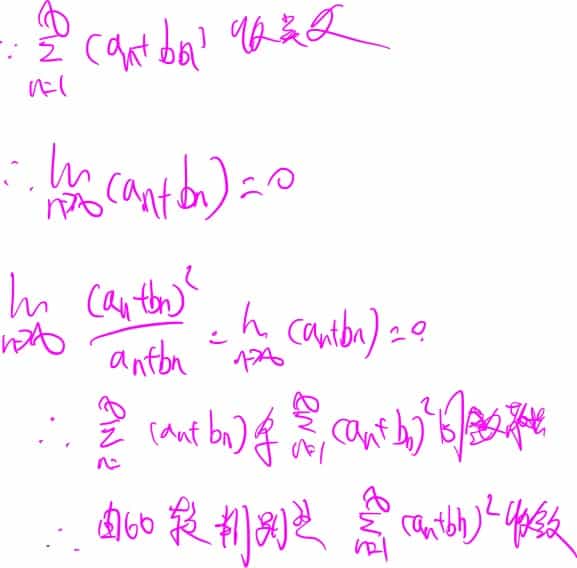 ∵ ∑_{n=1}^{∞} (a_n + b_n) 收敛
∴ lim_{n→∞} (a_n + b_n) = 0
lim_{n→∞} (a_n + b_n)^2 / (a_n + b_n) = lim_{n→∞} (a_n + b_n) = 0
∴ ∑_{n=}^{∞} (a_n + b_n) ∑_{n=1}^{∞} (a_n + b_n)^2 同敛散
∴ 由比较判别法 ∑_{n=1}^{∞} (a_n + b_n)^2 收敛